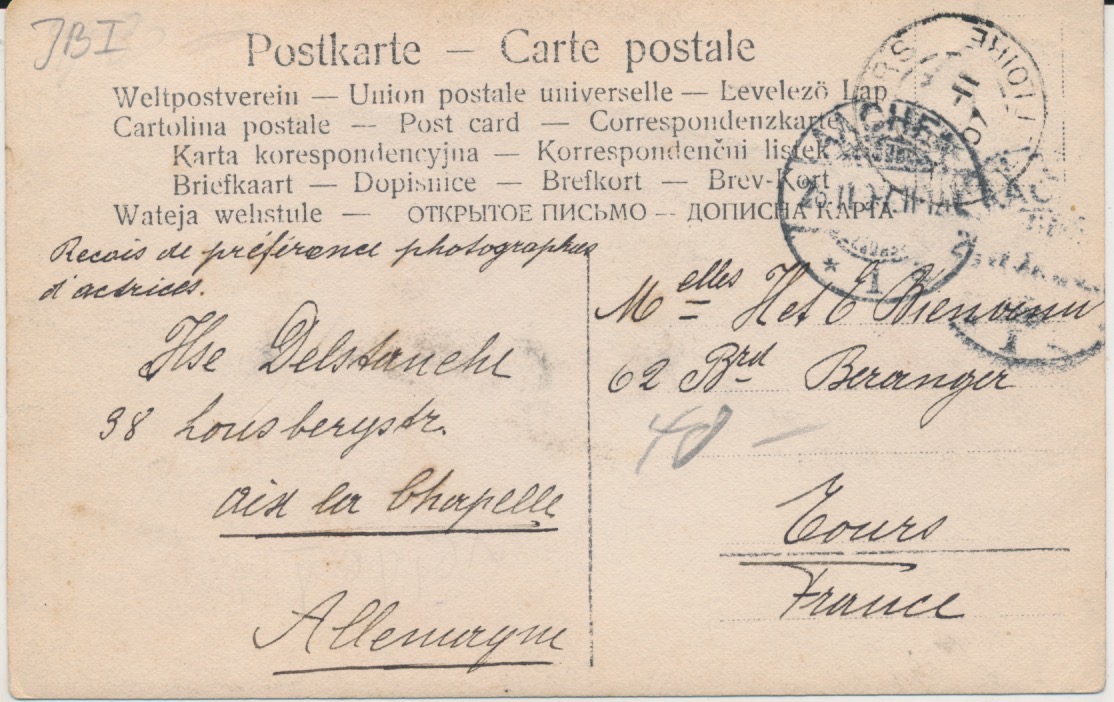 JBI
Postkarte — Carte postale
Weltpostverein — Union postale universelle — Levelező Lap
Cartolina postale — Post card — Correspondenzkarte
Karta korespondencyjna — Korrespondenčni listek
Briefkaart — Dopisnice — Brefkort — Brev-Kort
Wateja wehstule — ОТКРЫТОЕ ПИСЬМО -- ДОПИСНА КАРТА
Recois de préférance photographies
d'actrices.
Ilse Delstanche
38 Lousbergstr.
Aix la Chapelle
Allemagne
Melles H et E Bienvenu
62 Brd Beranger
40 —
Tours
France
AACHEN
* 1
LOIRE
11
07
1